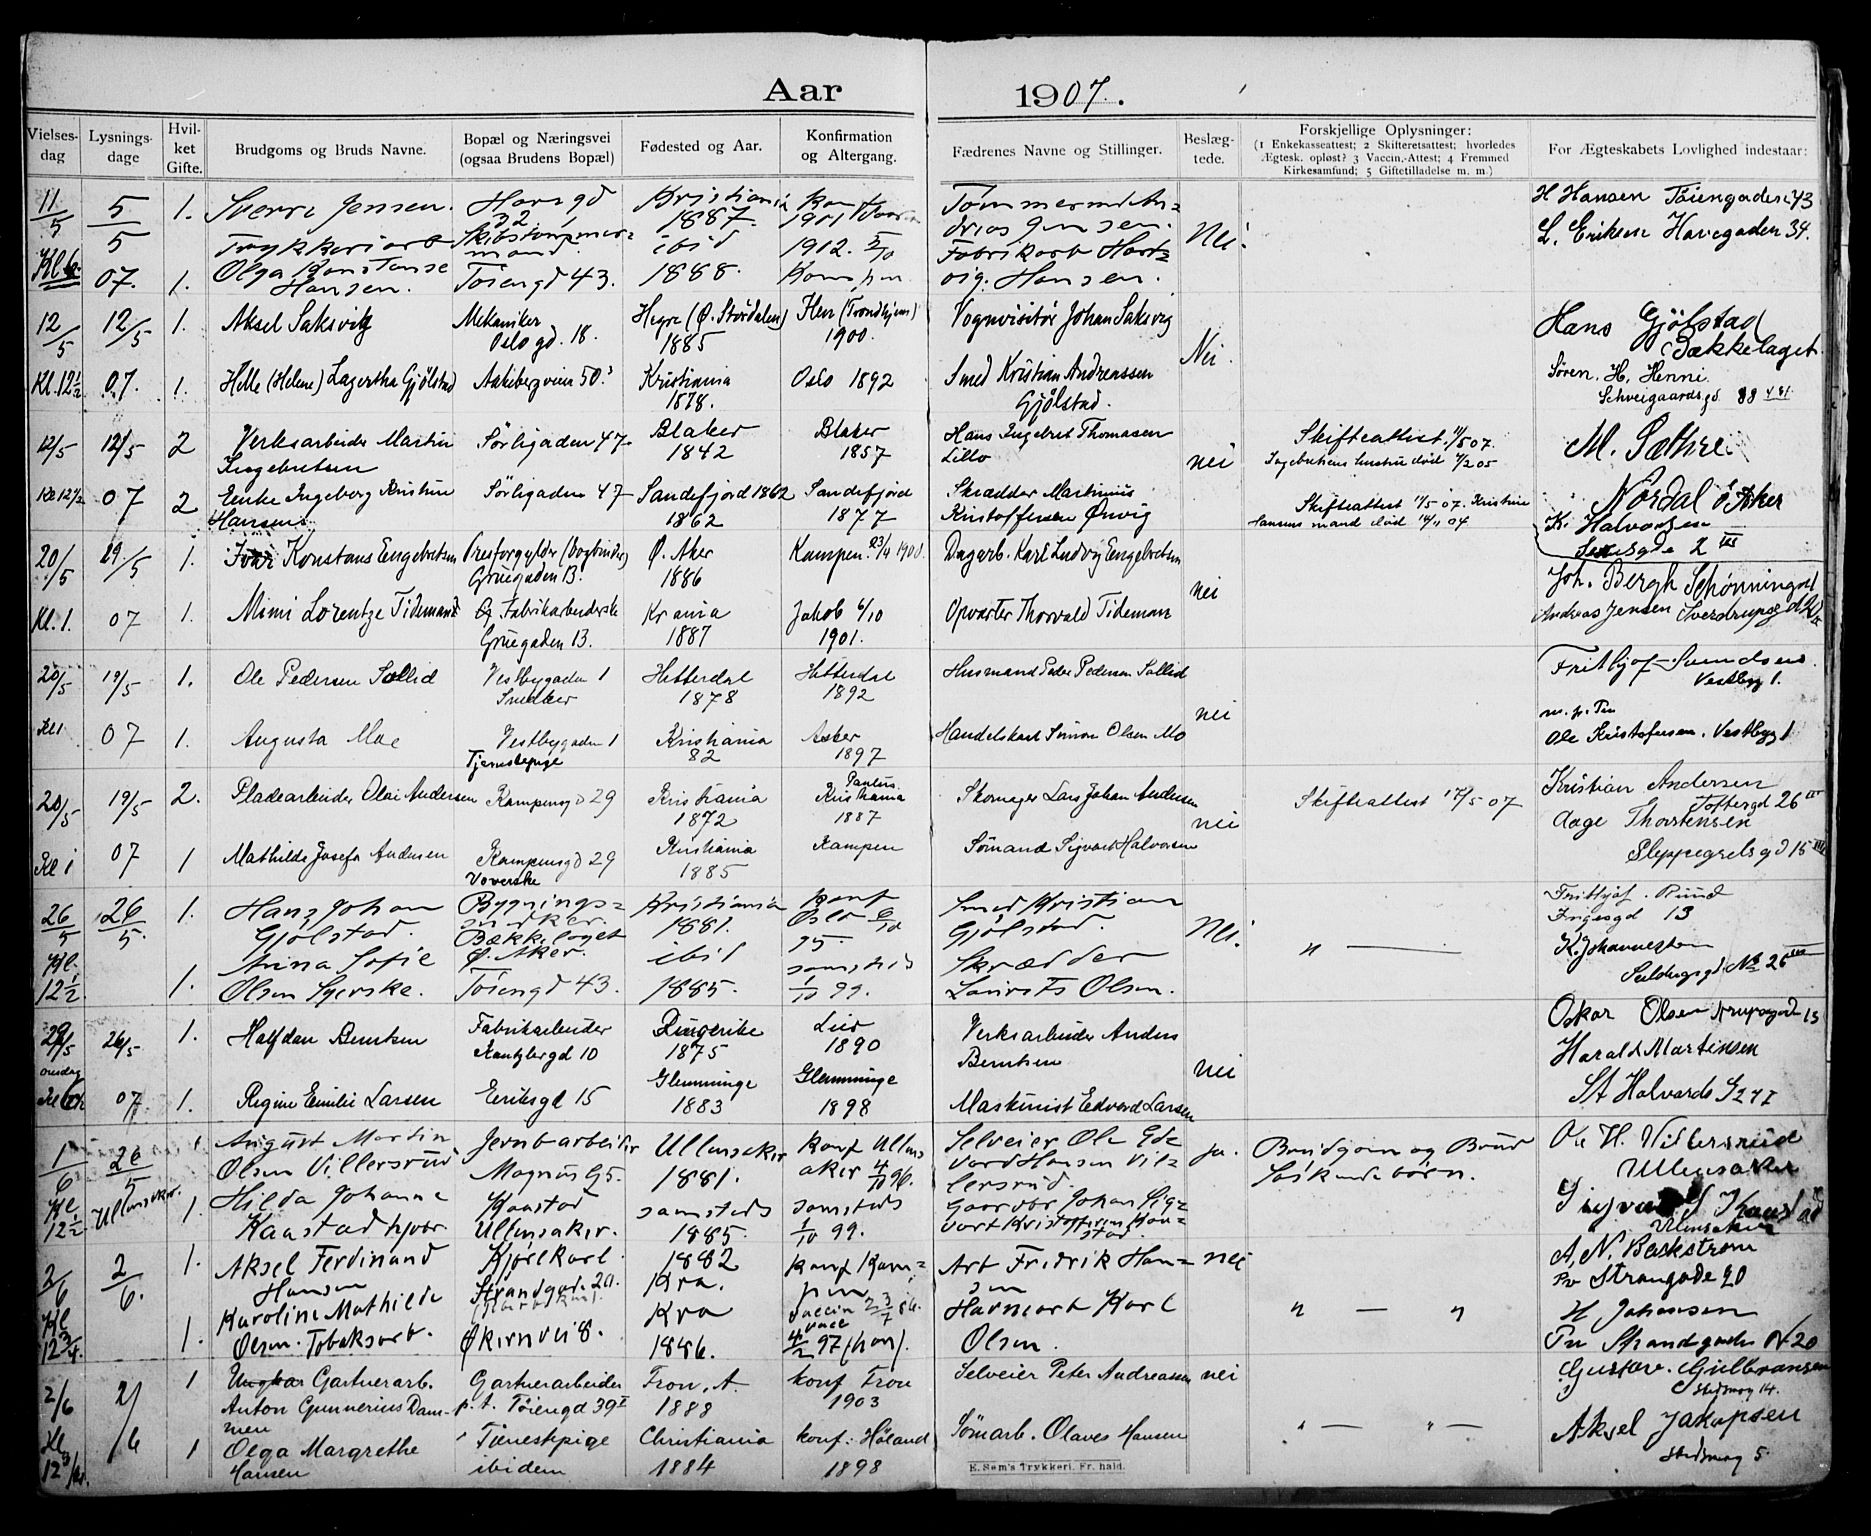 Aar 1907.
Vielses-dag | Lysnings-dage | Hvil-ket Gifte. | Brudgoms og Bruds Navne. | Bopæl og Næringsvei (ogsaa Brudens Bopæl) | Fødested og Aar. | Konfirmation og Altergang. | Fædrenes Navne og Stillinger. | Beslæg-tede. | Forskjellige Oplysninger: (1 Enkekasseattest; 2 Skifteretsattest; hvorledes Ægtesk. opløst? 3 Vaccin.-Attest; 4 Fremmed Kirkesamfund; 5 Giftetilladelse m. m.) | For Ægteskabets Lovlighed indestaar:
11/5 5/5 1. Sverre Jensen. Havegd 32 Kristiania 1887. Kon 1901 Tømmermd An= H Hansen Tøiengaden 43
Trykkeriarb Skibstømmer= mand. ibid 1912. 5/10 drias Jensen. Nei. L. Eriksen Havegaden 34.
Kl 6. 07. 1. Olga Konstanse Hansen. Tøiengd 43. 1888. Kampen Fabrikarb Hart= vig. Hansen.
12/5 12/5 1. Aksel Saksvig Mekaniker Oslo gd. 18. Hegre (Ø. Stördalen) 1885 (Trondhjem) 1900. Vognvisitør Johan Saksvig Nei. Hans Gjølstad Bækkelaget.
Kl. 12½ 07. 1. Helle (Helene) Lagertha Gjølstad Aakebergveien 50.³ Kristiania 1878. Oslo 1892 Smed Kristian Andreassen Gjølstad. Søren. H. Henni. Schweigaardsgd. 88
12/5 12/5 2 Verksarbeider Martin Ingebretsen Sørligaden 47 Blaker 1842 Blaker 1857 Hans Ingebret Thomasen Lillo nei Skifteattest 11/5 07. Ingebretsens hustru død 11/2 05 M. Sæthre
Kl 12½ 07 2 Enke Ingeborg Kristine Hansen Sørligaden 47 Sandefjord 1862 1862 Sandefjord 1877 Skrædder Martinius Kristoffersen Ørvig Skifteattest 11/5 07. Kristine Hansens mand død 14/11 04 Nordal Ø Aker K. Halvorsen
20/5 19/5 1. Konstans Engebretsen (Bogbinder) Gruegaden 13. Ø. Aker 1886 Kampen 23/4 1900. Dagarb. Karl Ludvig Engebretsen nei Joh. Bergh Schønningsgd
Kl. 1. 07 1. Mimi Lorentze Tidemand Fabrikarbeiderske Gruegaden 13. Krania 1887 Jakob 6/10 1901. Opvarter Thorvald Tideman Andreas Jensen Sverdrupsgd
20/5 19/5 1. Ole Pedersen Sollid Vestbygaden 1 Snedker Hitterdal 1878 Hitterdal 1892 Husmand Peder Pedersen Sollid nei Frithjof Svendsen. Vestbyg 1.
Kl 1 07 1. Augusta Moe Vestbygaden 1 Tjenestepige Kristiania 82 Asker 1897 Handelskarl Simon Olsen Mo m. p. Pen Ole Kristofersen. Vestbyg 1
20/5 19/5 2. Pladearbeider Olai Andersen Kampensgd 29 Kristiania 1872 Paulus Kristiania 1887 Skomager Lars Johan Andersen nei Skifteattest 17/5 07 Kristian Andersen Toftesgd 26 III
Kl 1 07 1 Mathilde Josefa Andersen Kampensgd 29 Væverske Kristiania 1885 Kampen Sømand Sigvart Halvorsen Aage Thorstensen Sleppegrelsgd 15 III
26/5 26/5. 1. Hans Johan Gjølstad. Bygnings= snedker. Bækkelaget Ø. Aker. Kristiania 1881. Konf Oslo 6/10 95. Smed Kristian Gjølstad. Nei. " — Frithjof. Rund Ingesgd 13
Kl. 12½ 1. Anna Sofie Olsen Syerske. Tøiengd 43. ibid 1885. samsteds 1/10 99. Skrædder Laurits Olsen. K. Johannesen Seildugsgd No 26 III
29/5 onsdag 26/5 1. Halfdan Berntsen Fabrikarbeider Rantzbergd 10 Ringerike 1875 Lier 1890 Verksarbeider Anders Berntsen nei Oskar Olsen Krupsgd 15
Kl 6½ 07 1. Regine Emilie Larsen Eeriksgd 15 Glemminge 1883 Glemminge 1898 Maskinist Edvard Larsen Harald Martinsen St Halvards G 27 I
1/6 26/5 1 August Martin Olsen Villersrud Jernbarbeider Magnus G 5. Ullensaker 1881. Konf Ullensaker 4/10 96. Selveier Ole Edvard Hansen Vil= lersrud. Ja. Brudgom og Brud Søskendebørn. Ole H. Villersrud Ullensaker
Kl 12½ Ullensaker. 1. Hilda Johanne Kaastad Kaastad Ullensaker. samsteds 1885. samsteds 1/10 99. Gaardbr Johan Sig= vart Kristoffersen Kaa= stad. Sigvart J Kaastad Ullensaker
2/6 2/6. 1. Aksel Ferdinand Hansen Kjørekarl Strandgad. 20. 1882 Kra. Konf Kam= pen Arb Fridrik Han= sen nei A. N. Backstrøm Strangade 20
Kl 12¾. 1. Karoline Mathilde Olsen. Tobaksarb. Økernvei 8. Kra 1886. Vaccin vacc 4/2 97 (han). Havnearb Karl Olsen. " — " H Johansen Strandgaden N 20
2/6 2/6 1 Ungkar Gartnerarb. Anton Gunnerius Dam-men Gartnerarbeider p. t. Tøiengd 39 I Fron. A. 1888 konf Fron 1903 Selveier Peter Andreassen nei Gustav. Gulbransen 14.
Kl 12¾ 1 Olga Margrethe Hansen Tjenestpige ibidem Christiania 1884 konf: Høland 1898 Sømarb. Olaves Hansen " — " — Aksel Jakopsen 5
E. Sem's Trykkeri. Fr. hald.